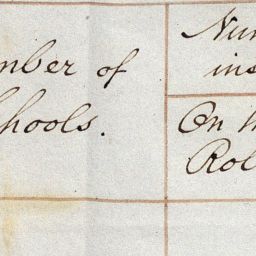 mber of
chools.
Num
ins
On th
Rol